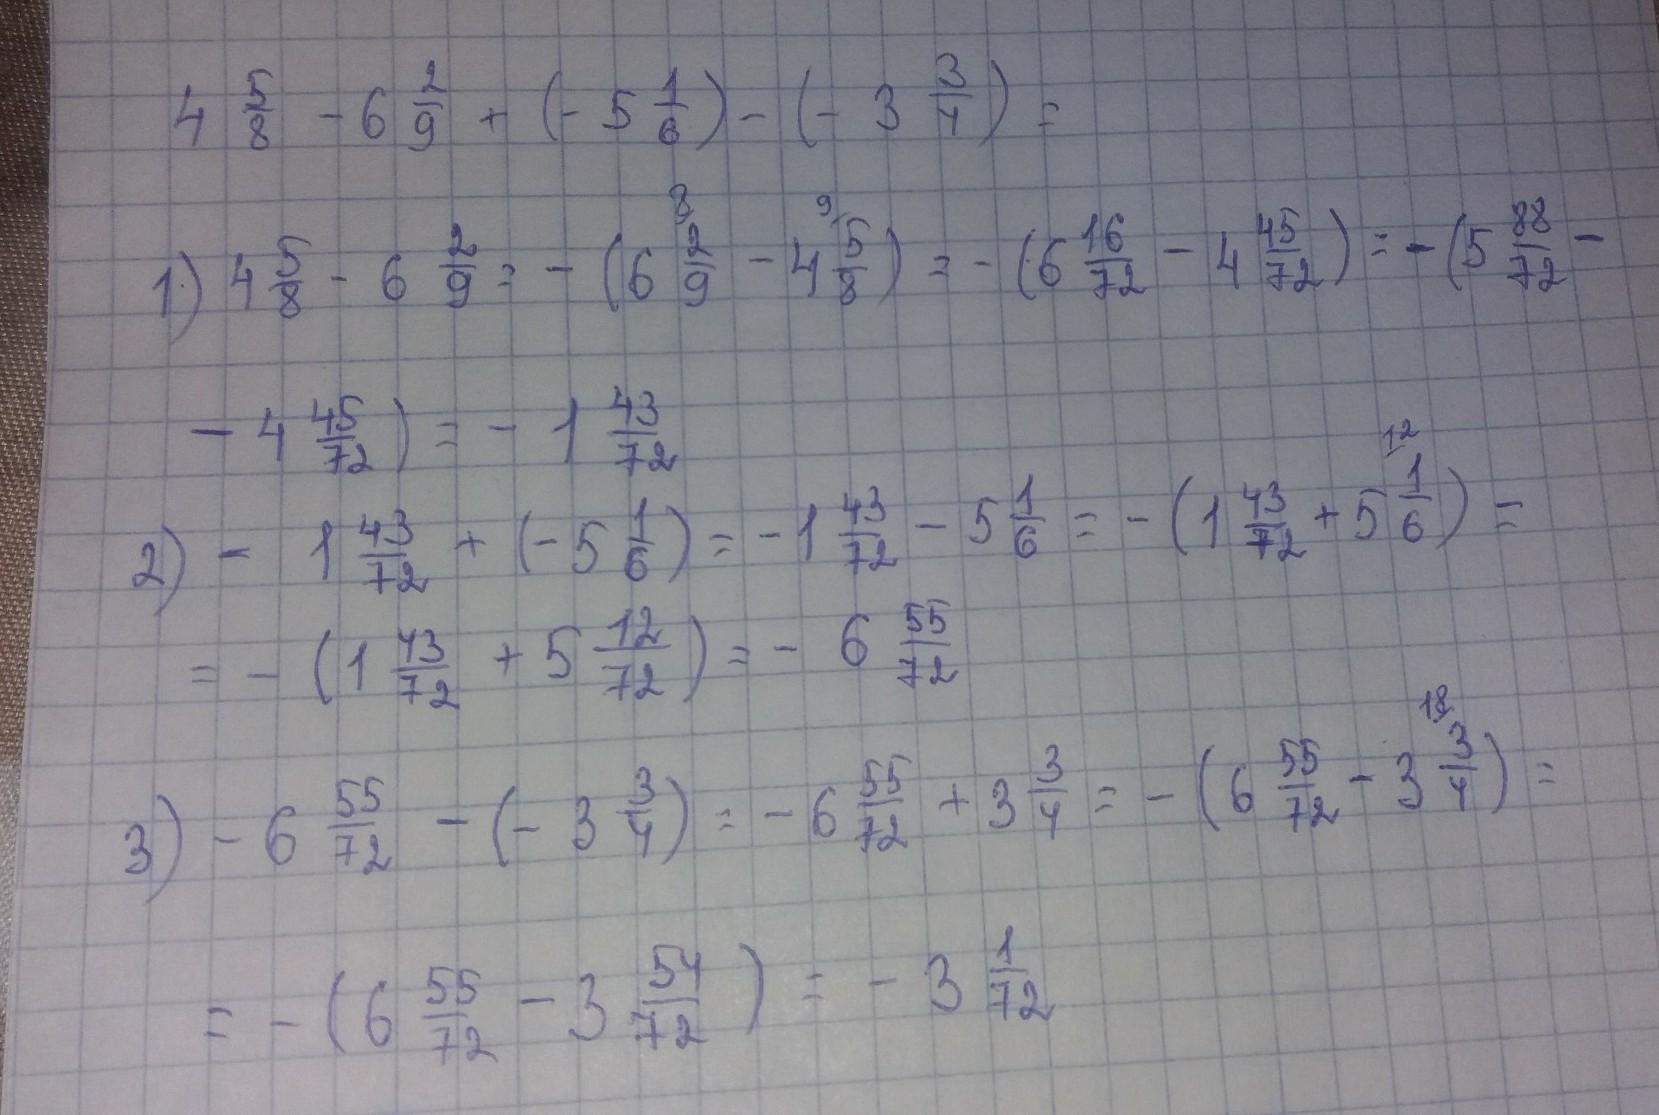 4 5/8 - 6 2/9 + (- 5 1/6) - (- 3 3/4) =
1) 4 5/8 - 6 2/9 = - (6 2/9 ⁸ - 4 5/8 ⁹) = - (6 16/72 - 4 45/72) = - (5 88/72 -
- 4 45/72) = - 1 43/72
2) - 1 43/72 + (- 5 1/6) = - 1 43/72 - 5 1/6 = - (1 43/72 + 5 1/6 ¹²) =
= - (1 43/72 + 5 12/72) = - 6 55/72
3) - 6 55/72 - (- 3 3/4) = - 6 55/72 + 3 3/4 = - (6 55/72 - 3 3/4 ¹⁸) =
= - (6 55/72 - 3 54/72) = - 3 1/72